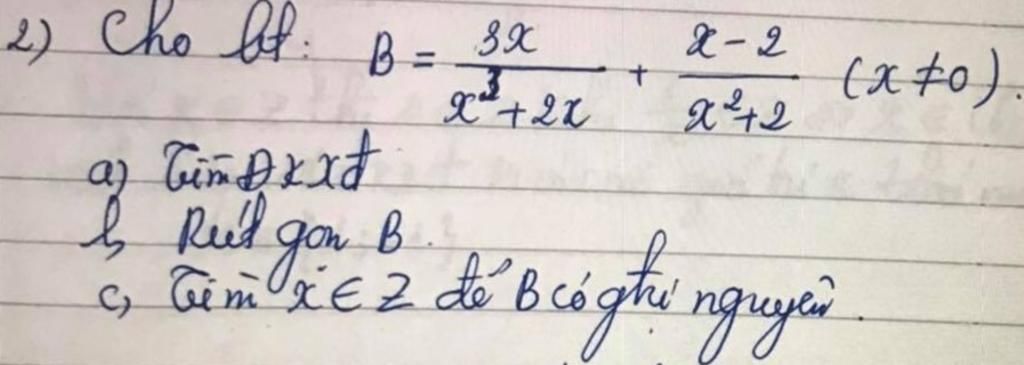 2) Cho bt: B = 3x / (x³ + 2x) + (x - 2) / (x² + 2) (x ≠ 0).
a) Tìm ĐKXĐ
b, Rút gọn B.
c, Tìm x ∈ Z để B có gtrị nguyên.